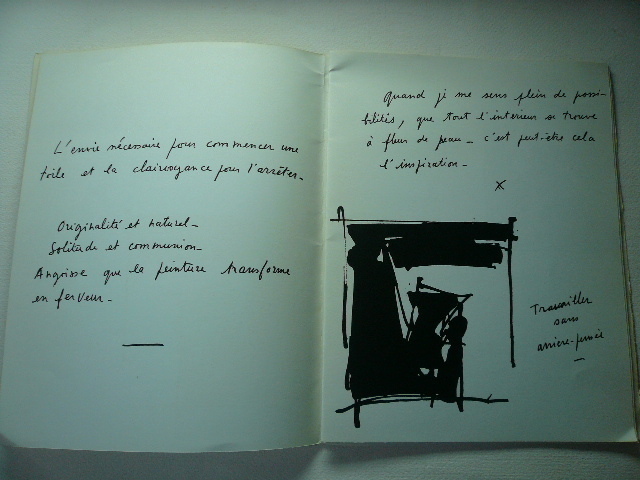 L'envie nécessaire pour commencer une
toile et la clairvoyance pour l'arrêter_
Originalité et naturel_
Solitude et communion_
Angoisse que la peinture transforme
en ferveur_
Quand je me sens plein de possi-
bilités, que tout l'intérieur se trouve
à fleur de peau_ c'est peut-être cela
l'inspiration_
X
Travailler
sans
arrière-pensée